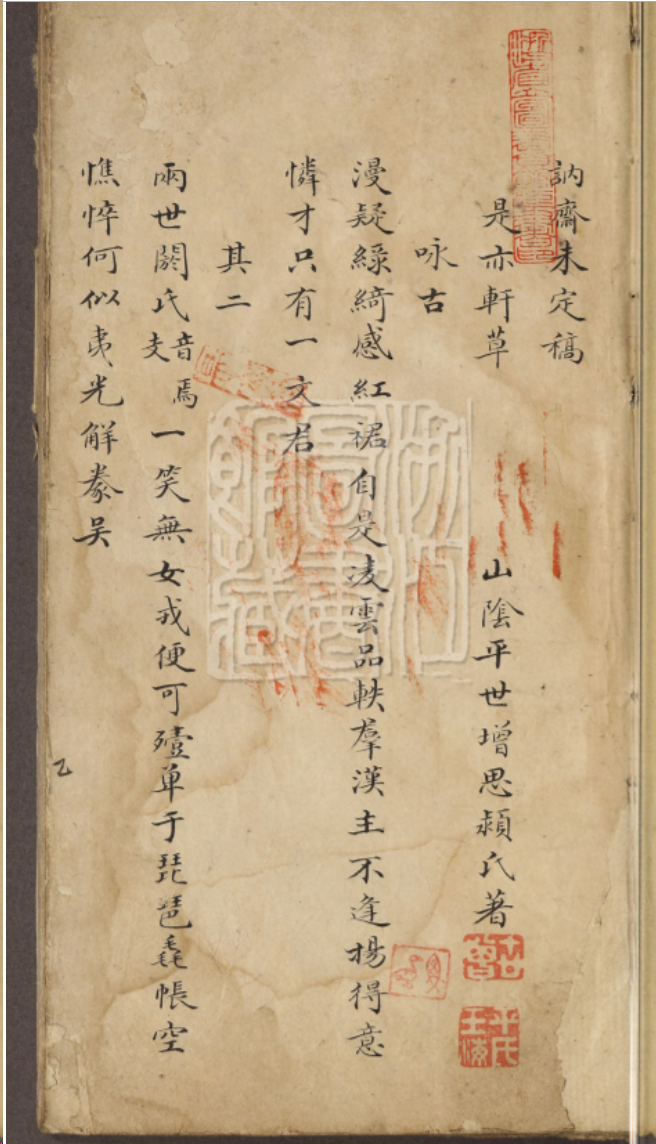 訥齋未定稿
是亦軒草
山陰平世增思潁氏著
咏古
漫疑綠綺感紅裙自是凌雲品軼羣漢主不逢楊得意
憐才只有一文君
其二
兩世閼氏音焉支一笑無女戎便可殪单于琵琶毳帳空
憔悴何似夷光解豢吴
浙江圖書館藏